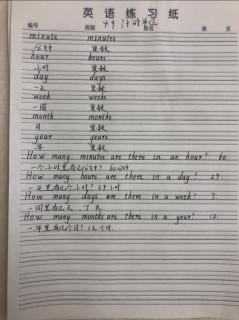 英语练习纸
编号 班级 姓名 第 页
49 计时单位
minute minutes
分钟 复数
hour hours
小时 复数
day days
一天 复数
week weeks
一周 复数
month months
月 复数
year years
年 复数
How many minutes are there in an hour? 60.
一个小时里有几分钟? 60分钟
How many hours are there in a day? 24.
一天里有几个小时? 24小时
How many days are there in a week? 7.
一周里有几天. 7天.
How many months are there in a year? 12.
一年里有几个月? 12个月.